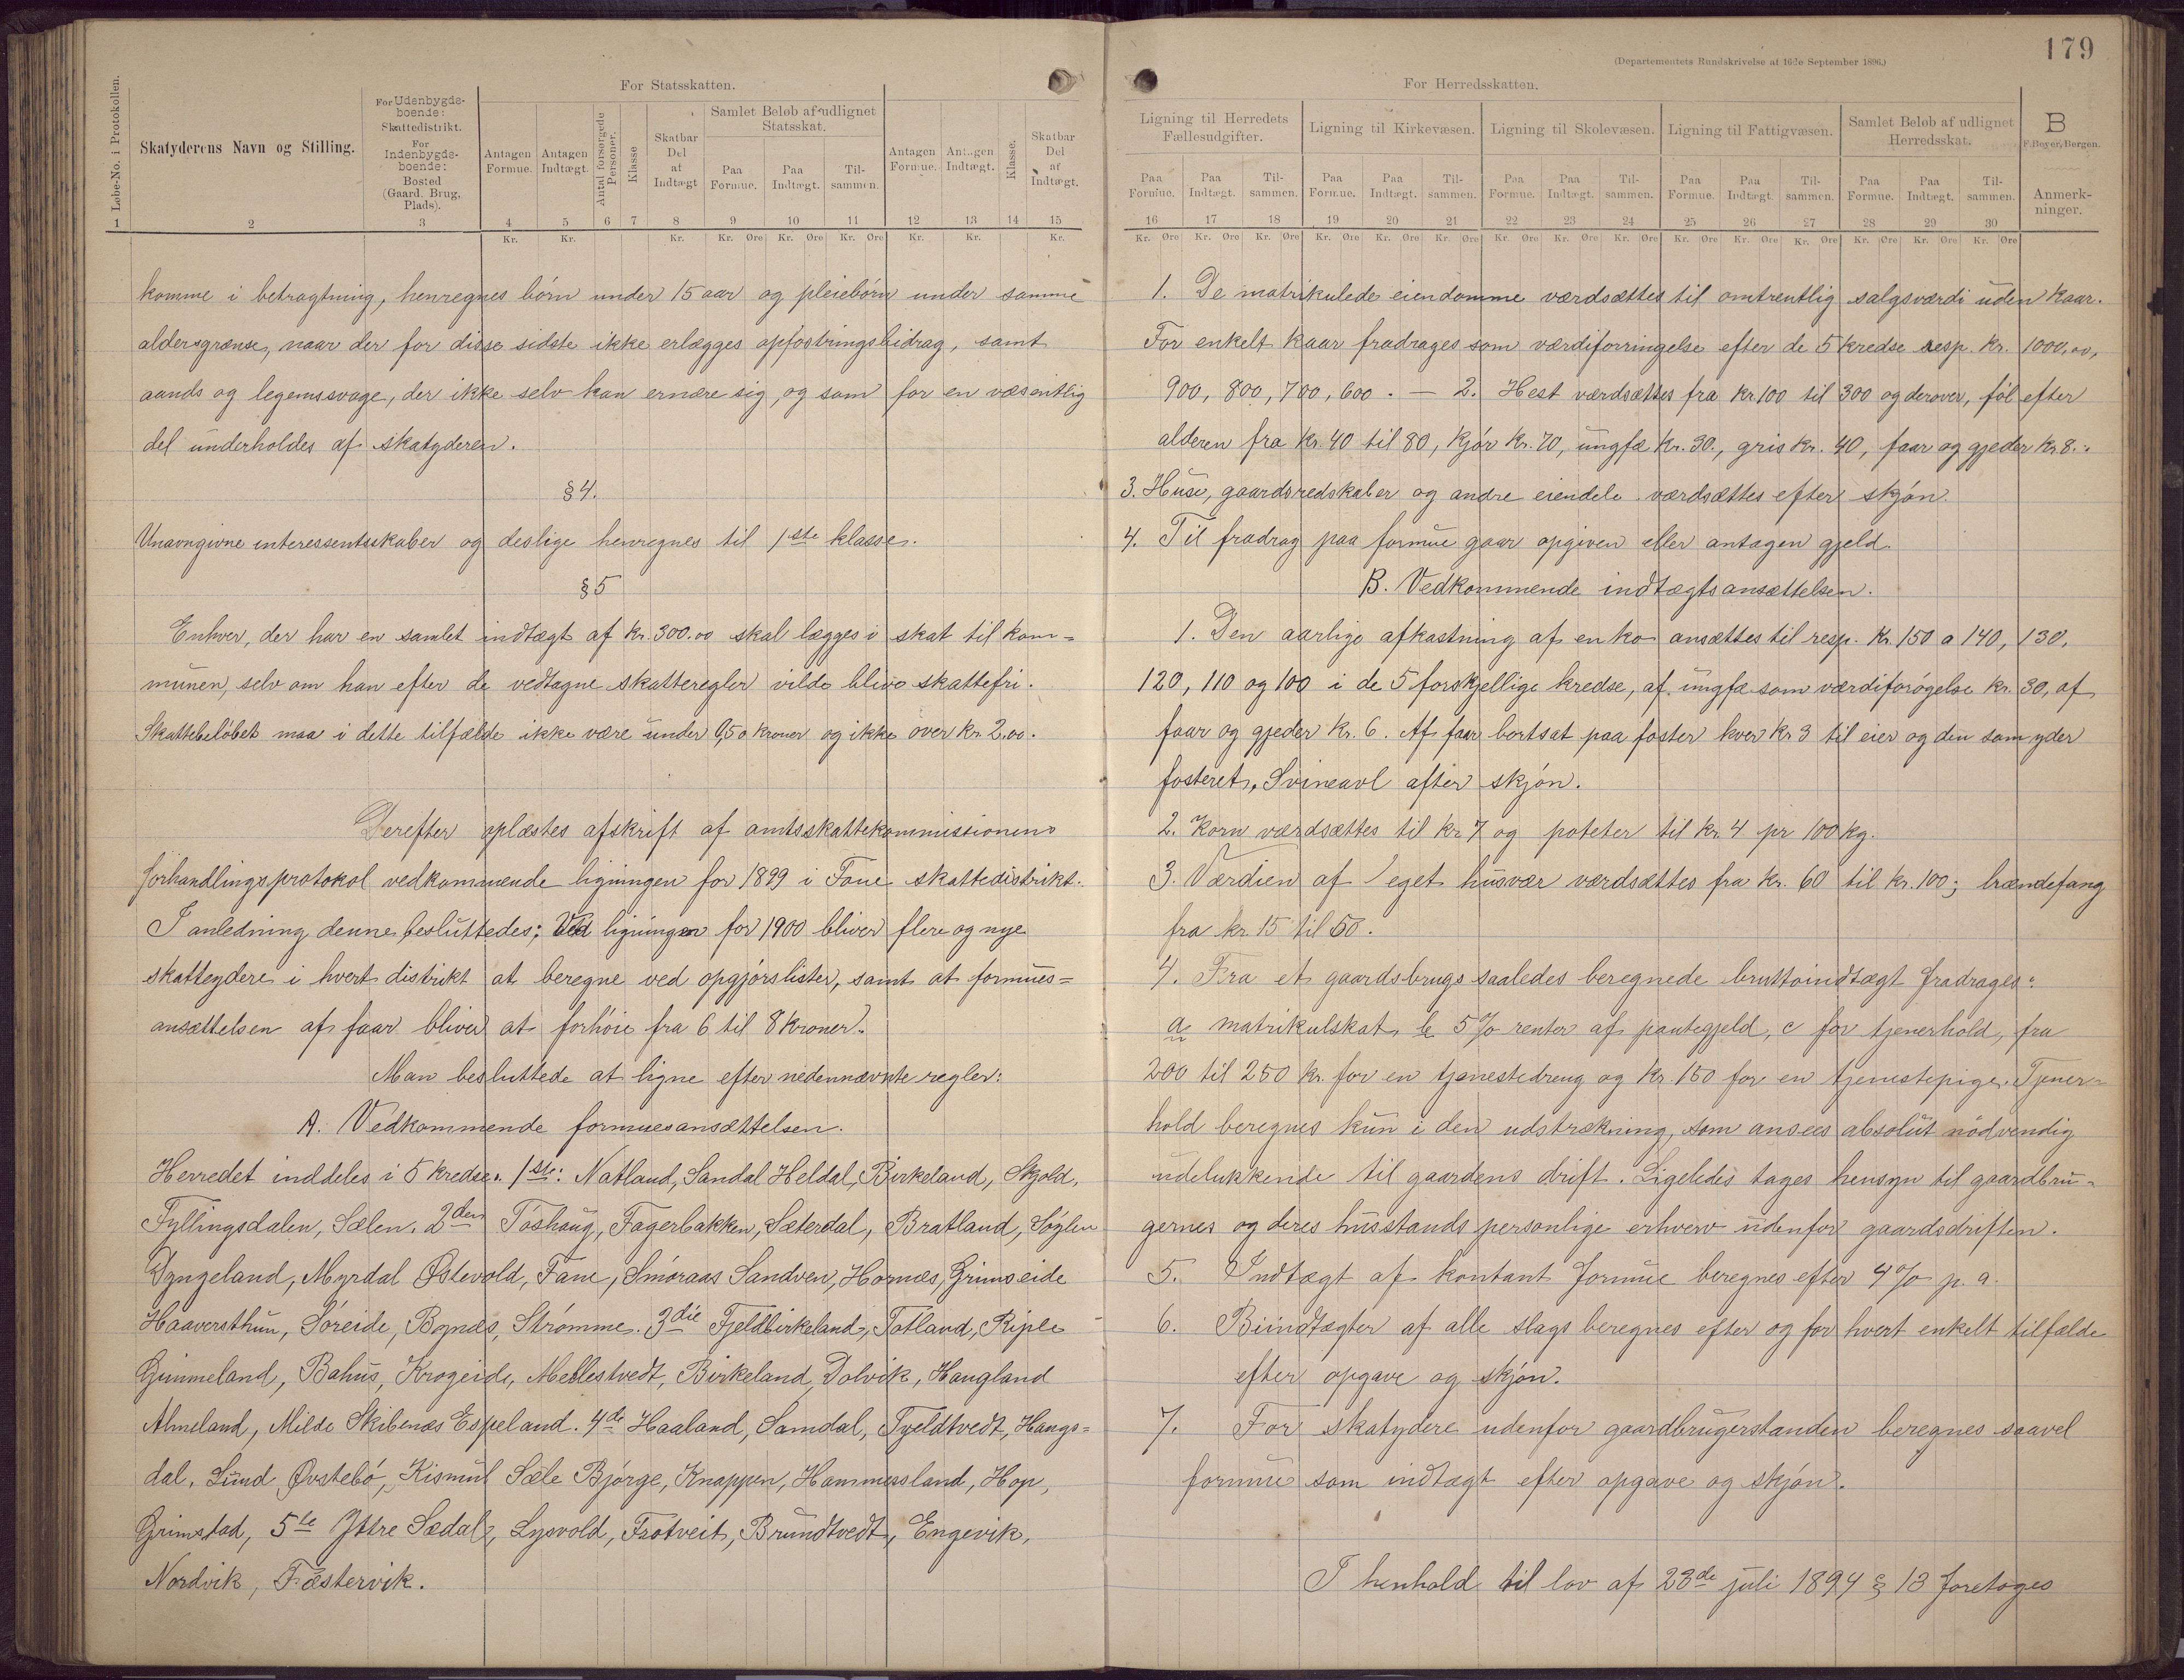 179
(Departementets Rundskrivelse af 16de September 1896.)
For Statsskatten.
Løbe-No. i Protokollen.
Skatyderens Navn og Stilling.
For Udenbygds-
boende:
Skattedistrikt.
For
Indenbygds-
boende:
Bosted
(Gaard, Brug,
Plads).
Antagen
Formue.
Antagen
Indtægt.
Antal forsørgede
Personer.
Klasse
Skatbar
Del
af
Indtægt
Samlet Beløb af udlignet
Statsskat.
Paa
Formue.
Paa
Indtægt.
Til-
sammen.
Antagen
Formue.
Antagen
Indtægt.
Klasse.
Skatbar
Del
af
Indtægt.
1 2 3 4 5 6 7 8 9 10 11 12 13 14 15
Kr. Kr. Kr. Kr. Øre Kr. Øre Kr. Øre Kr. Kr. Kr.
komme i betragtning, henregnes børn under 15 aar og pleiebørn under samme
aldersgrænse, naar der for disse sidste ikke erlægges opfostringsbidrag, samt
aands og legemssvage, der ikke selv kan ernære sig, og som for en væsentlig
del underholdes af skatyderen.
§ 4.
Unavngivne interessentskaber og deslige henregnes til 1ste klasse.
§ 5
Enhver, der har en samlet indtægt af kr. 300.00 skal lægges i skat til kom=
munen, selv om han efter de vedtagne skatteregler vilde blive skattefri.
Skattebeløbet maa i dette tilfælde ikke være under 0,50 kroner og ikke over kr. 2.00.
Derefter oplæstes afskrift af amtsskattekommissionens
forhandlingsprotokol vedkommende ligningen for 1899 i Fane skattedistrikt.
I anledning denne besluttedes; Ved ligningen for 1900 bliver flere og nye
skatteydere i hvert distrikt at beregne ved opgjørslister, samt at formues=
ansættelsen af faar bliver at forhøie fra 6 til 8 kroner.
Man besluttede at ligne efter nedennævnte regler:
A. Vedkommende formuesansættelsen.
Herredet inddeles i 5 kredse. 1ste: Natland, Sandal Heldal, Birkeland, Skjold,
Fyllingsdalen, Sælen. 2den Tøshaug, Fagerbakken, Sæterdal, Bratland, Søylen
Dyngeland, Myrdal Østevold, Fane, Smøraas Sandven, Hornæs, Grimseide
Haaversthun, Søreide, Bognæs, Strømme. 3die Fjeldbirkeland, Totland, Riple
Gimmeland, Bahus, Krogeide, Mellestvedt, Birkeland, Dolvik, Haugland
Almeland, Milde Skibenæs Espeland. 4de Haaland, Samdal, Tveldtvedt, Haugs=
dal, Lund, Øvstebø, Kismul Sæle Bjørge, Knappen, Hammersland, Hop,
Grimstad, 5te Yttre Sædal, Lysvold, Frotveit, Brundtvedt, Engevik,
Nordvik, Fæstervik.
For Herredsskatten.
Ligning til Herredets
Fællesudgifter.
Ligning til Kirkevæsen.
Ligning til Skolevæsen.
Ligning til Fattigvæsen.
Samlet Beløb af udlignet
Herredsskat.
B
F. Beyer, Bergen.
Anmerk-
ninger.
Paa
Formue.
Paa
Indtægt.
Til-
sammen.
Paa
Formue.
Paa
Indtægt.
Til-
sammen.
Paa
Formue.
Paa
Indtægt.
Til-
sammen.
Paa
Formue.
Paa
Indtægt.
Til-
sammen.
Paa
Formue.
Paa
Indtægt.
Til-
sammen.
16 17 18 19 20 21 22 23 24 25 26 27 28 29 30
Kr. Øre Kr. Øre Kr. Øre Kr. Øre Kr. Øre Kr. Øre Kr. Øre Kr. Øre Kr. Øre Kr. Øre Kr. Øre Kr. Øre Kr. Øre Kr. Øre Kr. Øre
1. De matrikulede eiendomme værdsættes til omtrentlig salgsværdi uden kaar.
For enkelt kaar fradrages som værdiforringelse efter de 5 kredse resp. kr. 1000,00,
900, 800, 700, 600. — 2. Hest værdsættes fra kr 100 til 300 og derover, føl efter
alderen fra kr. 40 til 80, kjør kr. 70, ungfæ kr. 30., gris kr. 40, faar og gjeder kr 8.
3. Huse, gaardsredskaber og andre eiendele værdsættes efter skjøn.
4. Til fradrag paa formue gaar opgiven eller antagen gjeld.
B. Vedkommende indtægtsansættelsen.
1. Den aarlige afkastning af en ko ansættes til resp. kr. 150 a 140, 130,
120, 110 og 100 i de 5 forskjellige kredse, af ungfæ som værdiforøgelse kr. 30, af
faar og gjeder kr. 6. Af faar bortsat paa foster hver kr 3 til eier og den som yder
fosteret. Svineavl efter skjøn.
2. Korn værdsættes til kr 7 og poteter til kr 4 pr 100 kg.
3. Værdien af eget husvær værdsættes fra kr. 60 til kr. 100; brændefang
fra kr. 15 til 50.
4. Fra et gaardsbrugs saaledes beregnede bruttoindtægt fradrages:
a matrikulskat, b 5% renter af pantegjeld, c for tjenerhold, fra
200 til 250 kr. for en tjenestedreng og kr 150 for en tjenestepige. Tjener=
hold beregnes kun i den udstrækning, som ansees absolut nødvendig
udelukkende til gaardens drift. Ligeledes tages hensyn til gaardbru=
gernes og deres husstands personlige erhverv udenfor gaardsdriften.
5. Indtægt af kontant formue beregnes efter 4% p. a.
6. Biindtægter af alle slags beregnes efter og for hvert enkelt tilfælde
efter opgave og skjøn.
7. For skatydere udenfor gaardbrugerstanden beregnes saavel
formue som indtægt efter opgave og skjøn.
I henhold til lov af 23de juli 1894 § 13 foretoges